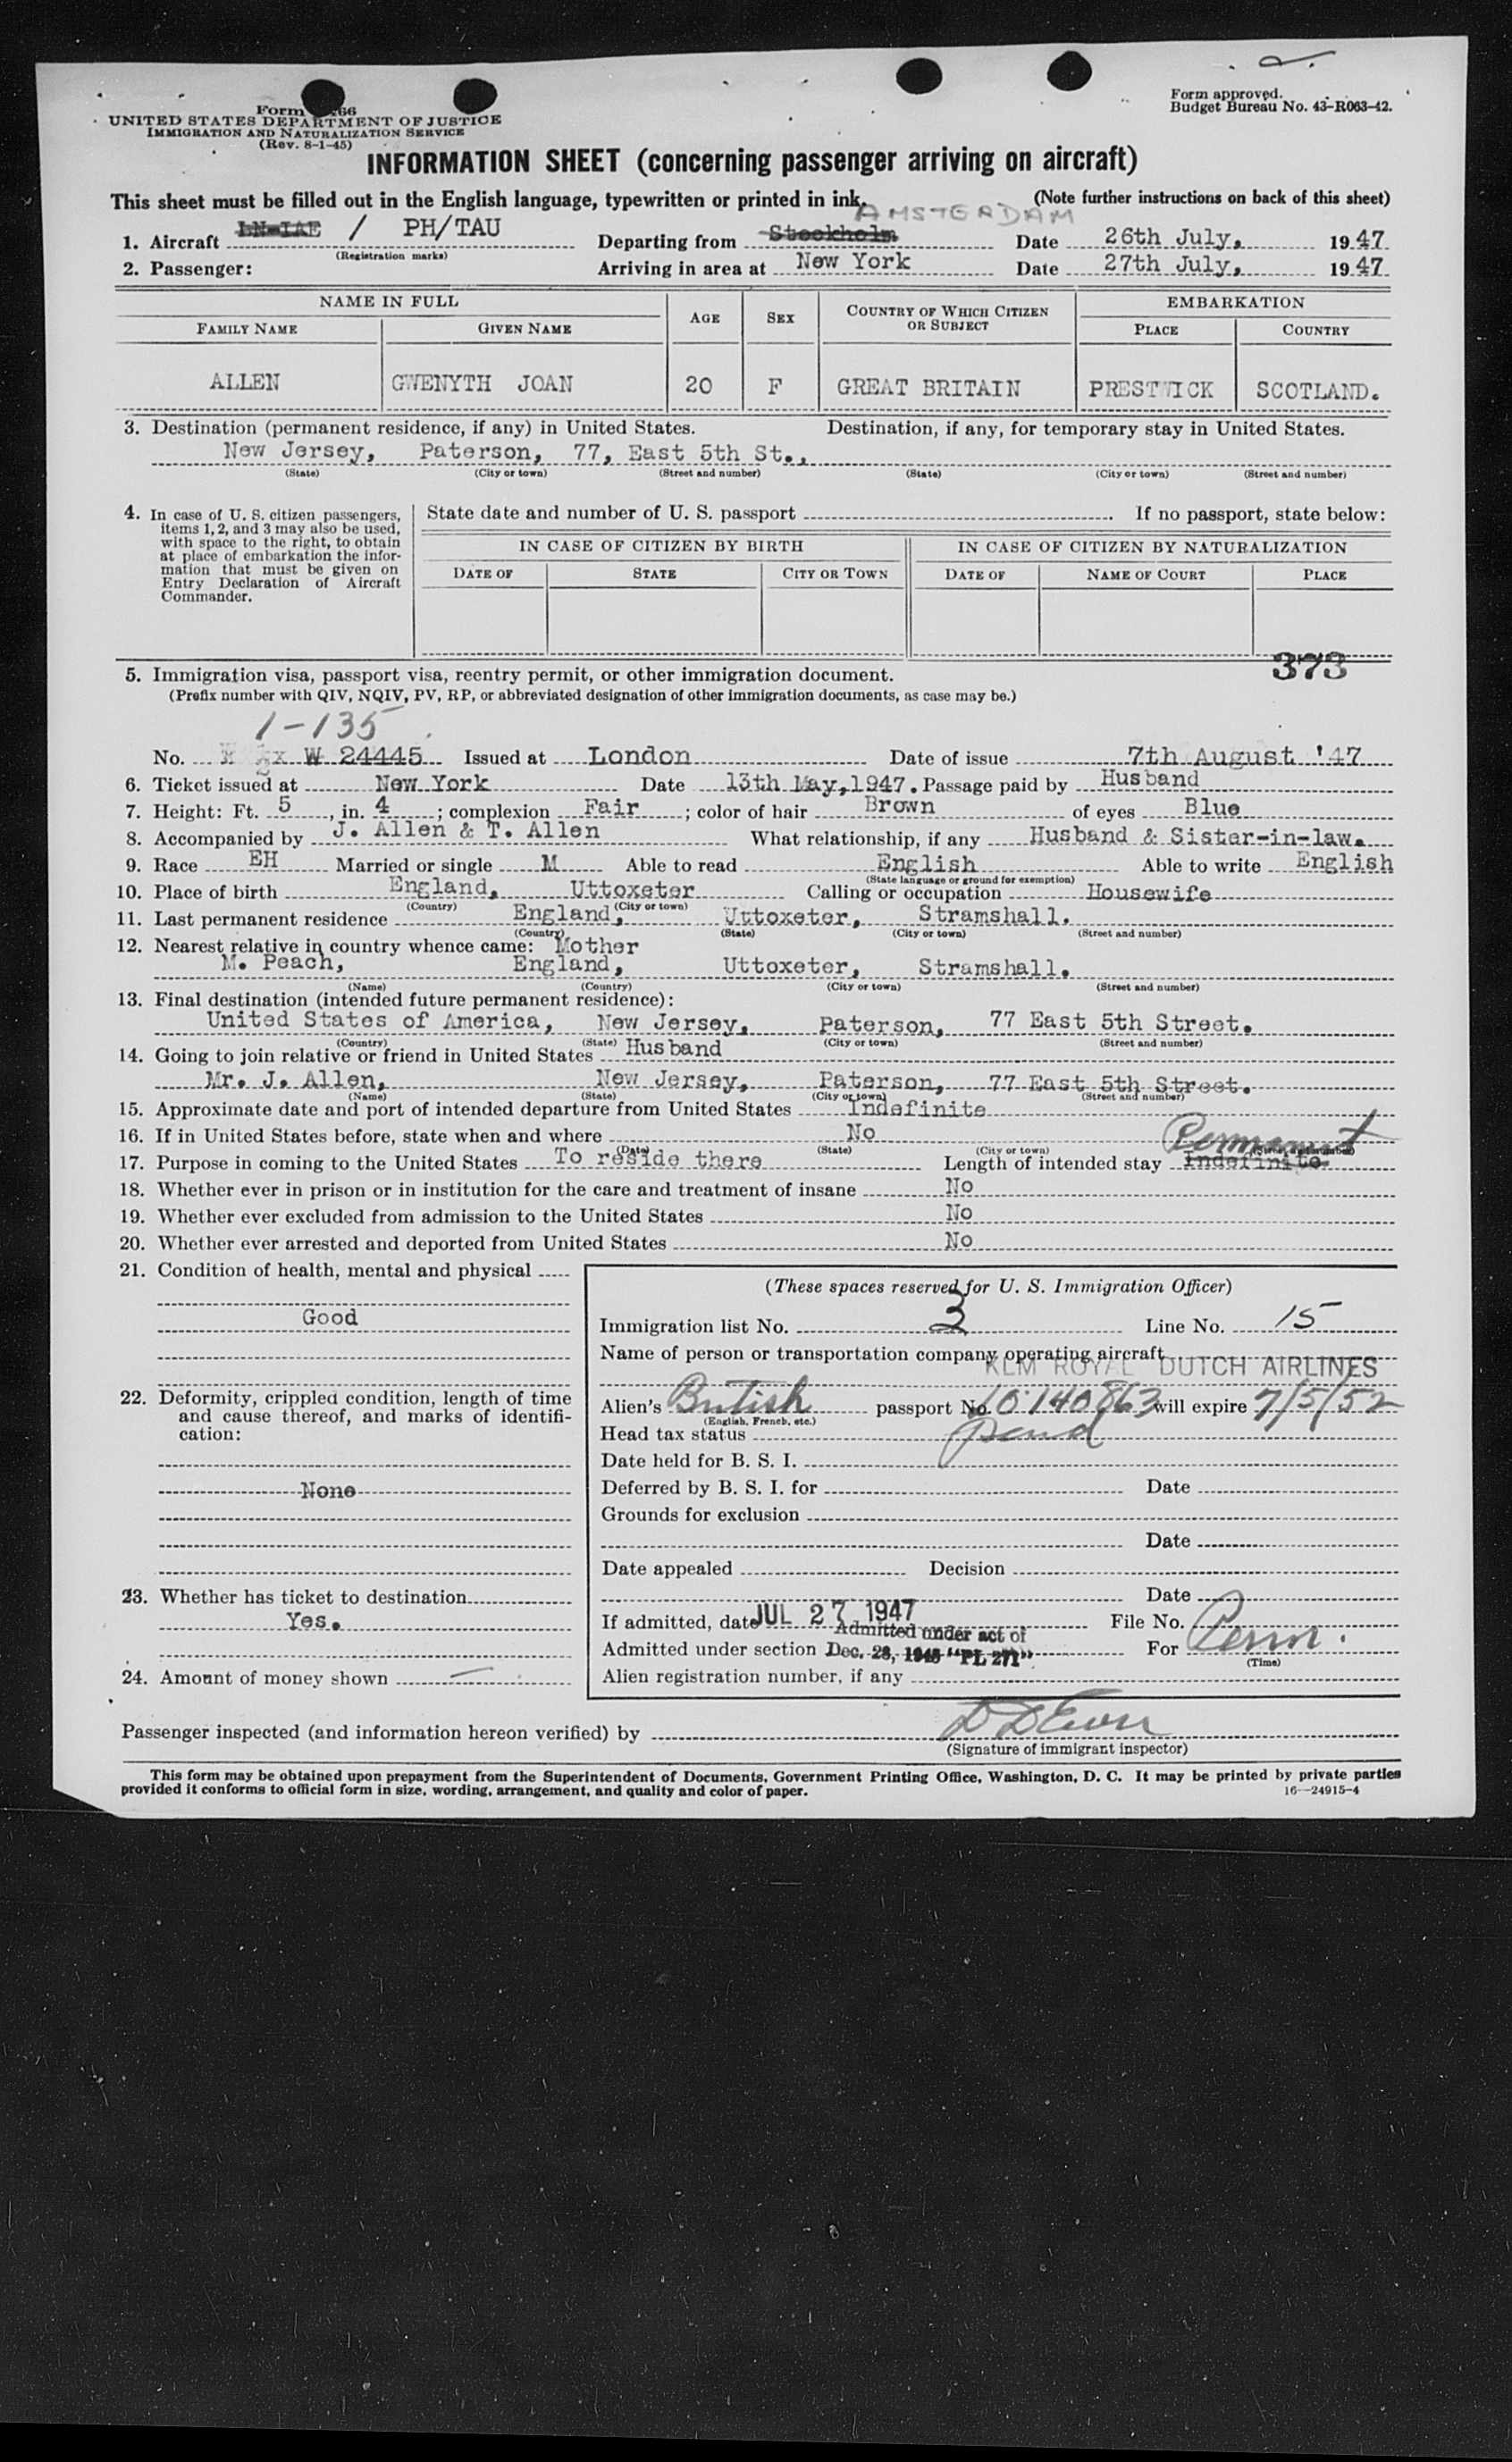 Form 66
UNITED STATES DEPARTMENT OF JUSTICE
IMMIGRATION AND NATURALIZATION SERVICE
(Rev. 8-1-45)
Form approved.
Budget Bureau No. 43-R063-42.
INFORMATION SHEET (concerning passenger arriving on aircraft)
This sheet must be filled out in the English language, typewritten or printed in ink. (Note further instructions on back of this sheet)
AMSTERDAM
1. Aircraft LN-IAE / PH/TAU Departing from Stockholm Date 26th July, 1947
(Registration marks)
2. Passenger: Arriving in area at New York Date 27th July, 1947
NAME IN FULL AGE SEX COUNTRY OF WHICH CITIZEN OR SUBJECT EMBARKATION
FAMILY NAME GIVEN NAME PLACE COUNTRY
ALLEN GWENYTH JOAN 20 F GREAT BRITAIN PRESTWICK SCOTLAND.
3. Destination (permanent residence, if any) in United States. Destination, if any, for temporary stay in United States.
New Jersey, Paterson, 77, East 5th St.,
(State) (City or town) (Street and number) (State) (City or town) (Street and number)
4. In case of U. S. citizen passengers, items 1, 2, and 3 may also be used, with space to the right, to obtain at place of embarkation the information that must be given on Entry Declaration of Aircraft Commander.
State date and number of U. S. passport If no passport, state below:
IN CASE OF CITIZEN BY BIRTH IN CASE OF CITIZEN BY NATURALIZATION
DATE OF STATE CITY OR TOWN DATE OF NAME OF COURT PLACE
373
5. Immigration visa, passport visa, reentry permit, or other immigration document.
(Prefix number with QIV, NQIV, PV, RP, or abbreviated designation of other immigration documents, as case may be.)
1-135
No. W 24445 Issued at London Date of issue 7th August '47
6. Ticket issued at New York Date 13th May, 1947. Passage paid by Husband
7. Height: Ft. 5, in. 4; complexion Fair; color of hair Brown of eyes Blue
8. Accompanied by J. Allen & T. Allen What relationship, if any Husband & Sister-in-law.
9. Race EH Married or single M Able to read English Able to write English
(State language or ground for exemption)
10. Place of birth England, Uttoxeter Calling or occupation Housewife
(Country) (City or town)
11. Last permanent residence England, Uttoxeter, Stramshall.
(Country) (State) (City or town) (Street and number)
12. Nearest relative in country whence came: Mother
M. Peach, England, Uttoxeter, Stramshall.
(Name) (Country) (City or town) (Street and number)
13. Final destination (intended future permanent residence):
United States of America, New Jersey, Paterson, 77 East 5th Street.
(Country) (State) (City or town) (Street and number)
14. Going to join relative or friend in United States Husband
Mr. J. Allen, New Jersey, Paterson, 77 East 5th Street.
(Name) (State) (City or town) (Street and number)
15. Approximate date and port of intended departure from United States Indefinite
16. If in United States before, state when and where No
(Date) (State) (City or town) (Street and number)
Permanent
17. Purpose in coming to the United States To reside there Length of intended stay Indefinite
18. Whether ever in prison or in institution for the care and treatment of insane No
19. Whether ever excluded from admission to the United States No
20. Whether ever arrested and deported from United States No
21. Condition of health, mental and physical
Good
22. Deformity, crippled condition, length of time and cause thereof, and marks of identification:
None
23. Whether has ticket to destination
Yes.
24. Amount of money shown —
(These spaces reserved for U. S. Immigration Officer)
Immigration list No. 3 Line No. 15
Name of person or transportation company operating aircraft
KLM ROYAL DUTCH AIRLINES
Alien's British passport No. 10140863 will expire 7/5/52
(English, French, etc.)
Head tax status
Date held for B. S. I.
Deferred by B. S. I. for Date
Grounds for exclusion
Date
Date appealed Decision
Date
If admitted, date JUL 27 1947 File No.
Admitted under act of
Admitted under section Dec. 28, 1945 "PL 271" For Perm.
(Time)
Alien registration number, if any
Passenger inspected (and information hereon verified) by
(Signature of immigrant inspector)
This form may be obtained upon prepayment from the Superintendent of Documents, Government Printing Office, Washington, D. C. It may be printed by private parties
provided it conforms to official form in size, wording, arrangement, and quality and color of paper. 16—24915-4